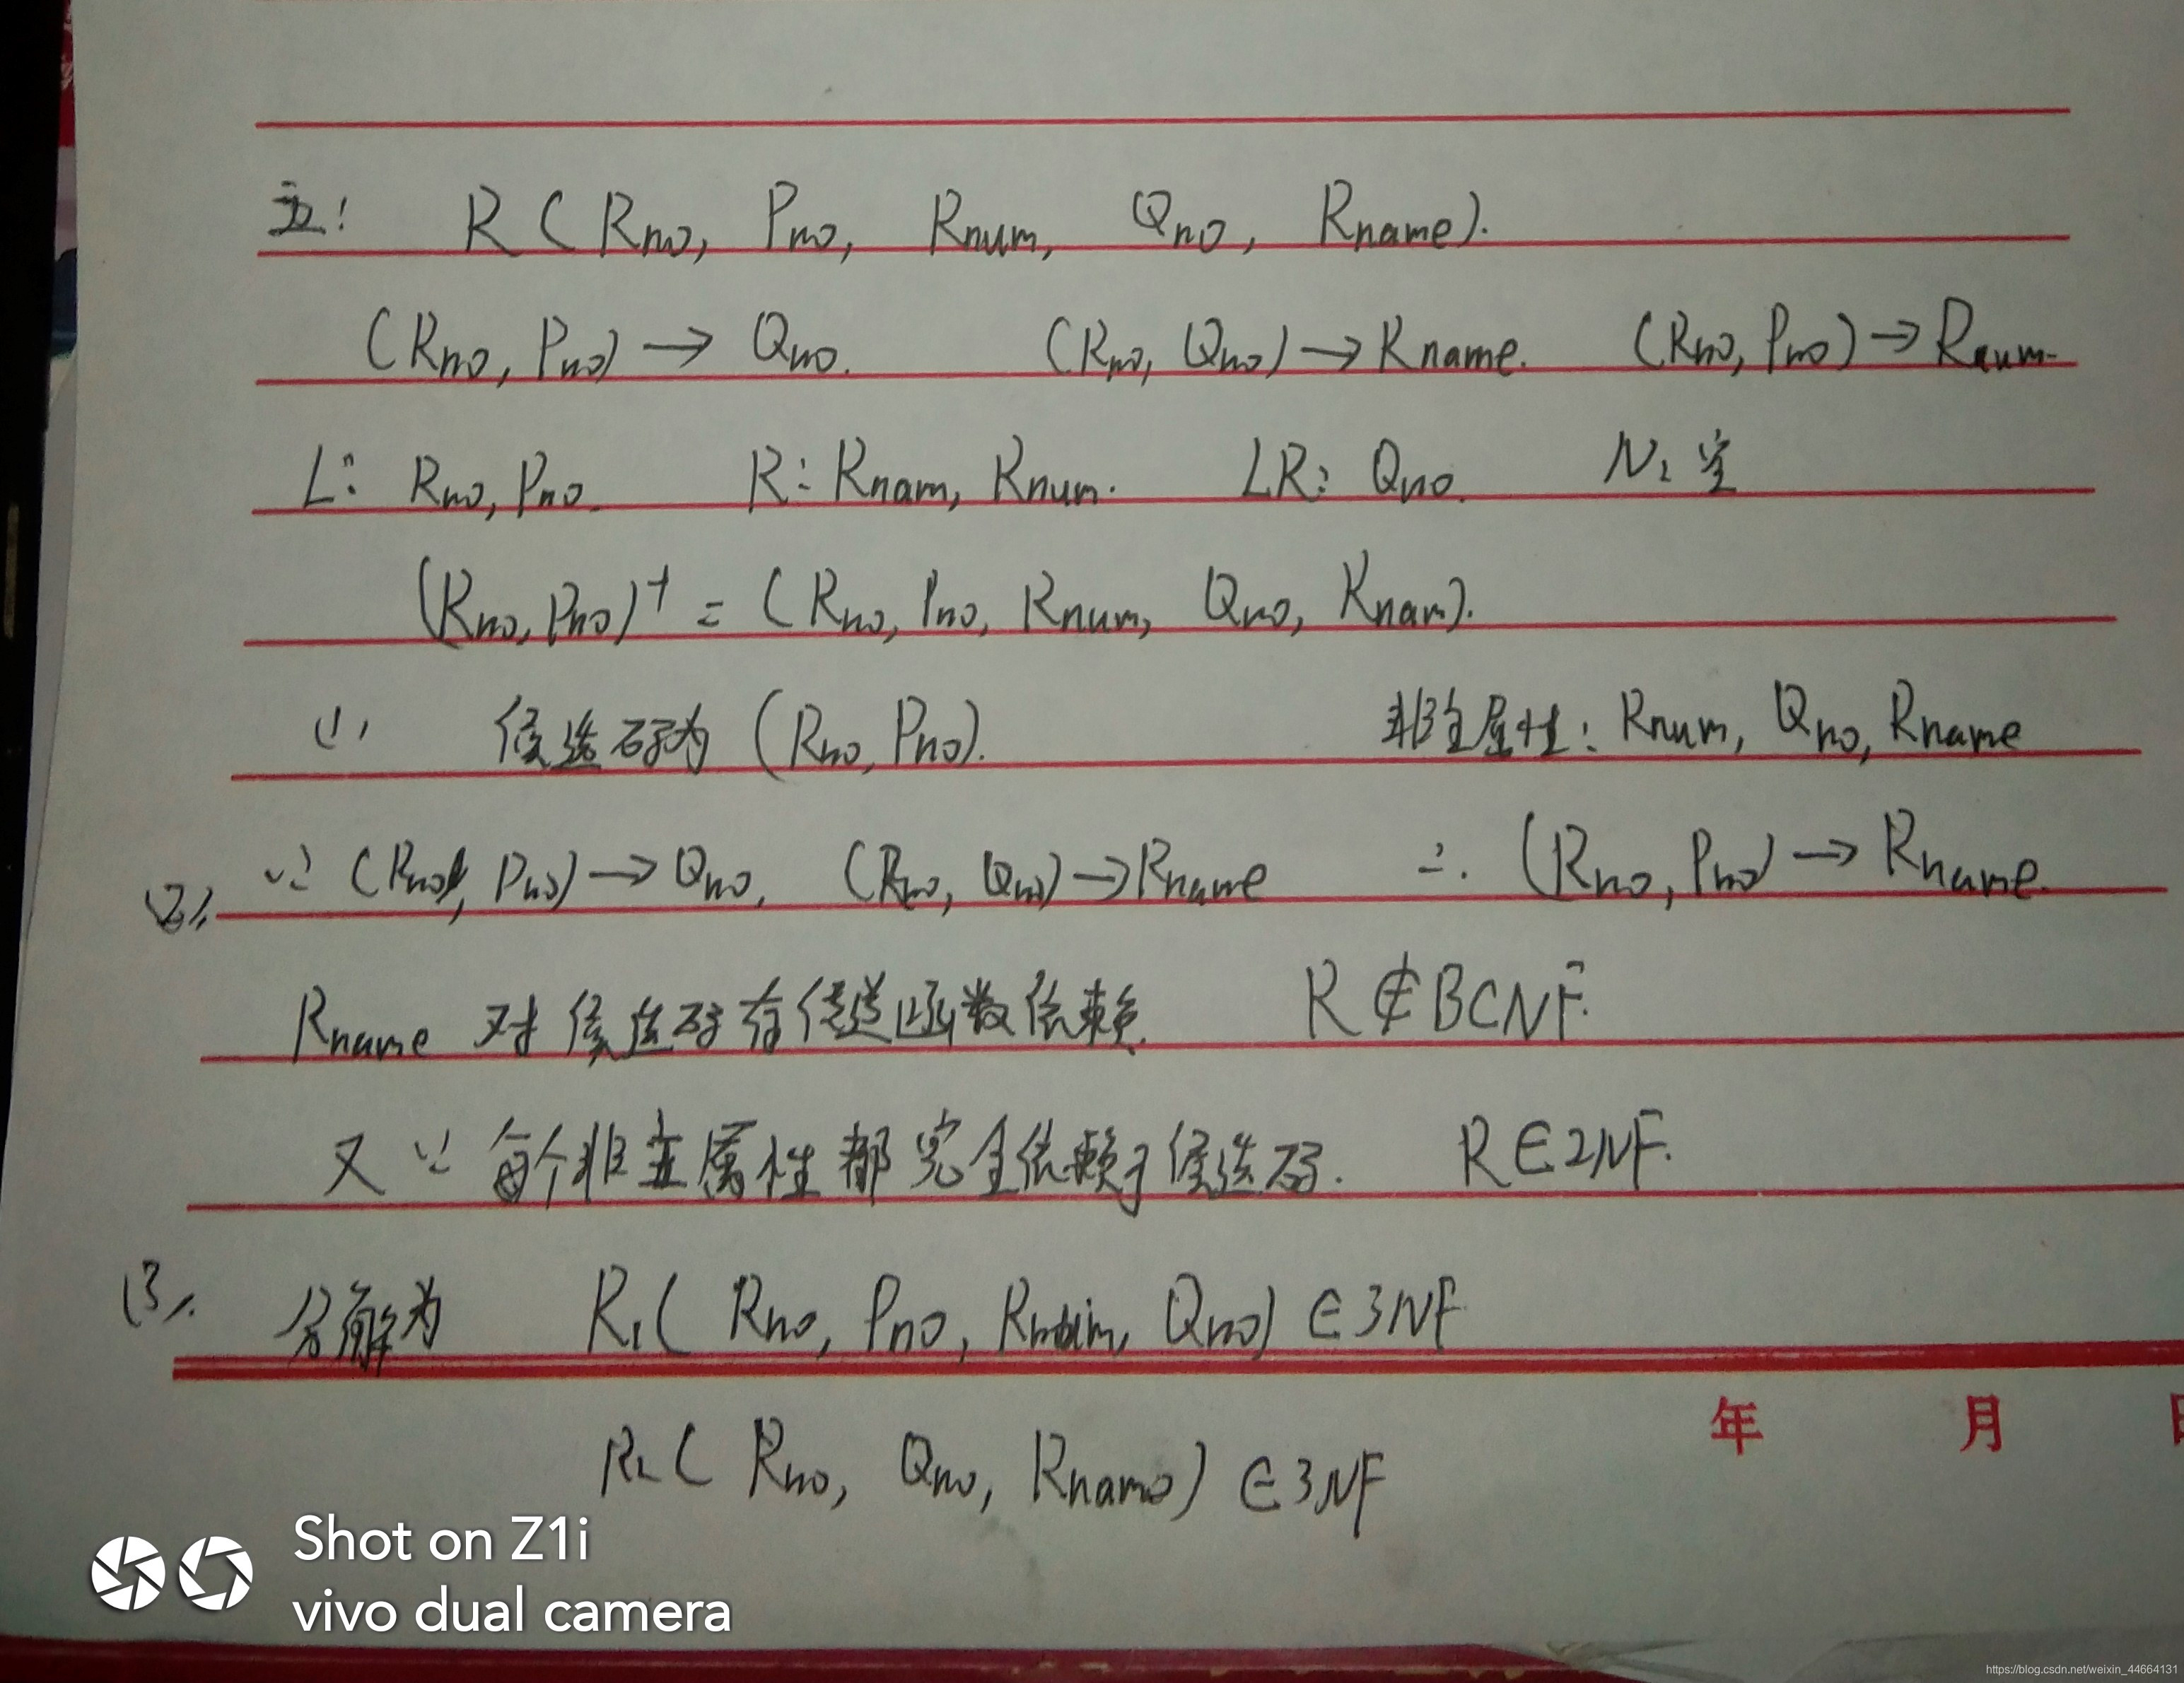 五: R ( Rno, Pno, Rnum, Qno, Rname).
(Rno, Pno) → Qno. (Rno, Qno) → Rname. (Rno, Pno) → Rnum.
L: Rno, Pno. R: Rnam, Rnum. LR: Qno. N: 空
(Rno, Pno)⁺ = ( Rno, Pno, Rnum, Qno, Rnam).
(1) 候选码为 (Rno, Pno). 非主属性: Rnum, Qno, Rname
(2). ∵ (Rno, Pno) → Qno, (Rno, Qno) → Rname ∴. (Rno, Pno) → Rname.
Rname 对候选码存传递函数依赖. R ∉ BCNF.
又 ∵ 每个非主属性都完全依赖于候选码. R ∈ 2NF.
(3). 分解为 R₁( Rno, Pno, Rnum, Qno) ∈ 3NF
年 月 日
R₂ ( Rno, Qno, Rname) ∈ 3NF
Shot on Z1i
vivo dual camera
https://blog.csdn.net/weixin_44664131